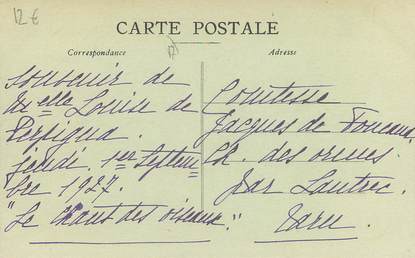 12 €
CARTE POSTALE
Correspondance
Adresse
souvenir de
Melle Louise de
Perpigna.
Jeudi. 1er Septem=
bre 1927.
"Le Chant des oiseaux".
Comtesse
Jacques de
Ch. des ormes.
par Lautrec.
Tarn.